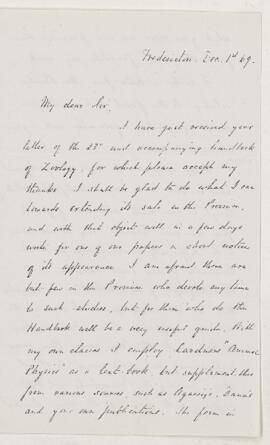 Fredericton. Dec. 1st 69.
My dear Sir,
I have just received your
letter of the 23rd and accompanying handbook
of Zoology for which please accept my
thanks. I shall be glad to do what I can
towards extending its sale in the Province,
and with that object will in a few days
write for one of our papers a short notice
of its appearance. I am afraid there are
but few in the Province who devote any time
to such studies, but for those who do the
Handbook will be a very useful guide. With
my own classes I employ
as a text-book, but supplement this
from various sources, such as Agassiz, Dana's
and your own publications. The form in